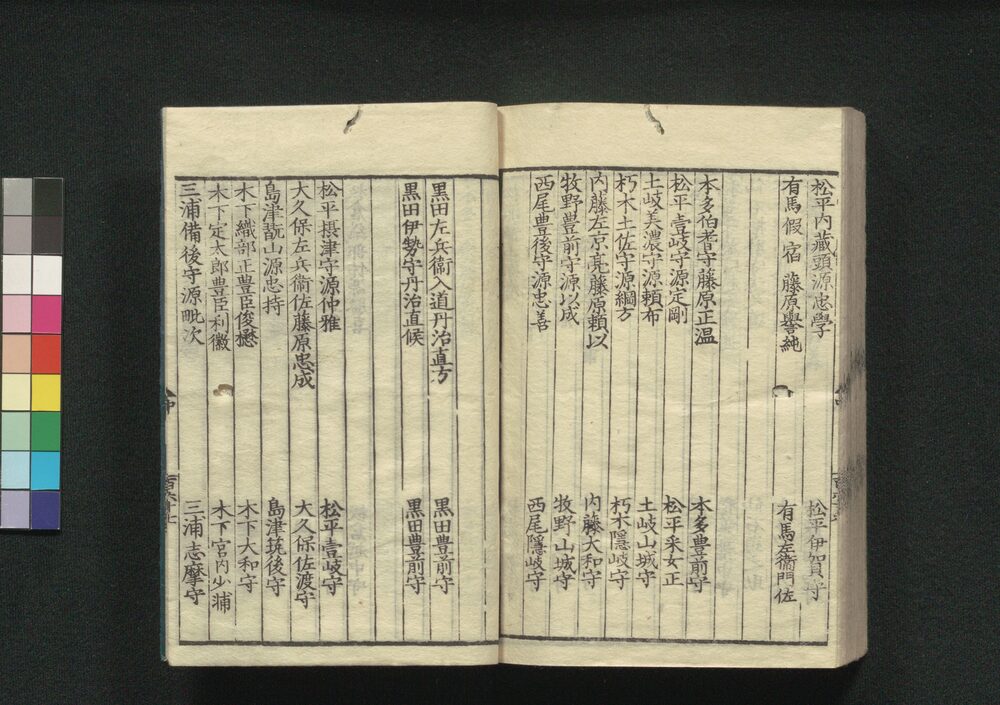 松平内藏頭源忠學 松平伊賀守
有馬假宿 藤原譽純 有馬左衞門佐
本多伯耆守藤原正温 本多豊前守
松平壹岐守源定剛 松平采女正
土岐美濃守源頼布 土岐山城守
朽木土佐守源綱方 朽木隱岐守
内藤左京亮藤原頼以 内藤大和守
牧野豊前守源以成 牧野山城守
西尾豊後守源忠善 西尾隱岐守
黒田左兵衞入道丹治直方 黒田豊前守
黒田伊勢守丹治直候 黒田豊前守
松平摂津守源仲雅 松平壹岐守
大久保左兵衞佐藤原忠成 大久保佐渡守
島津翫山源忠持 島津筑後守
木下織部正豊臣俊懋 木下大和守
木下定太郎豊臣利徽 木下宮内少浦
三浦備後守源毗次 三浦志摩守